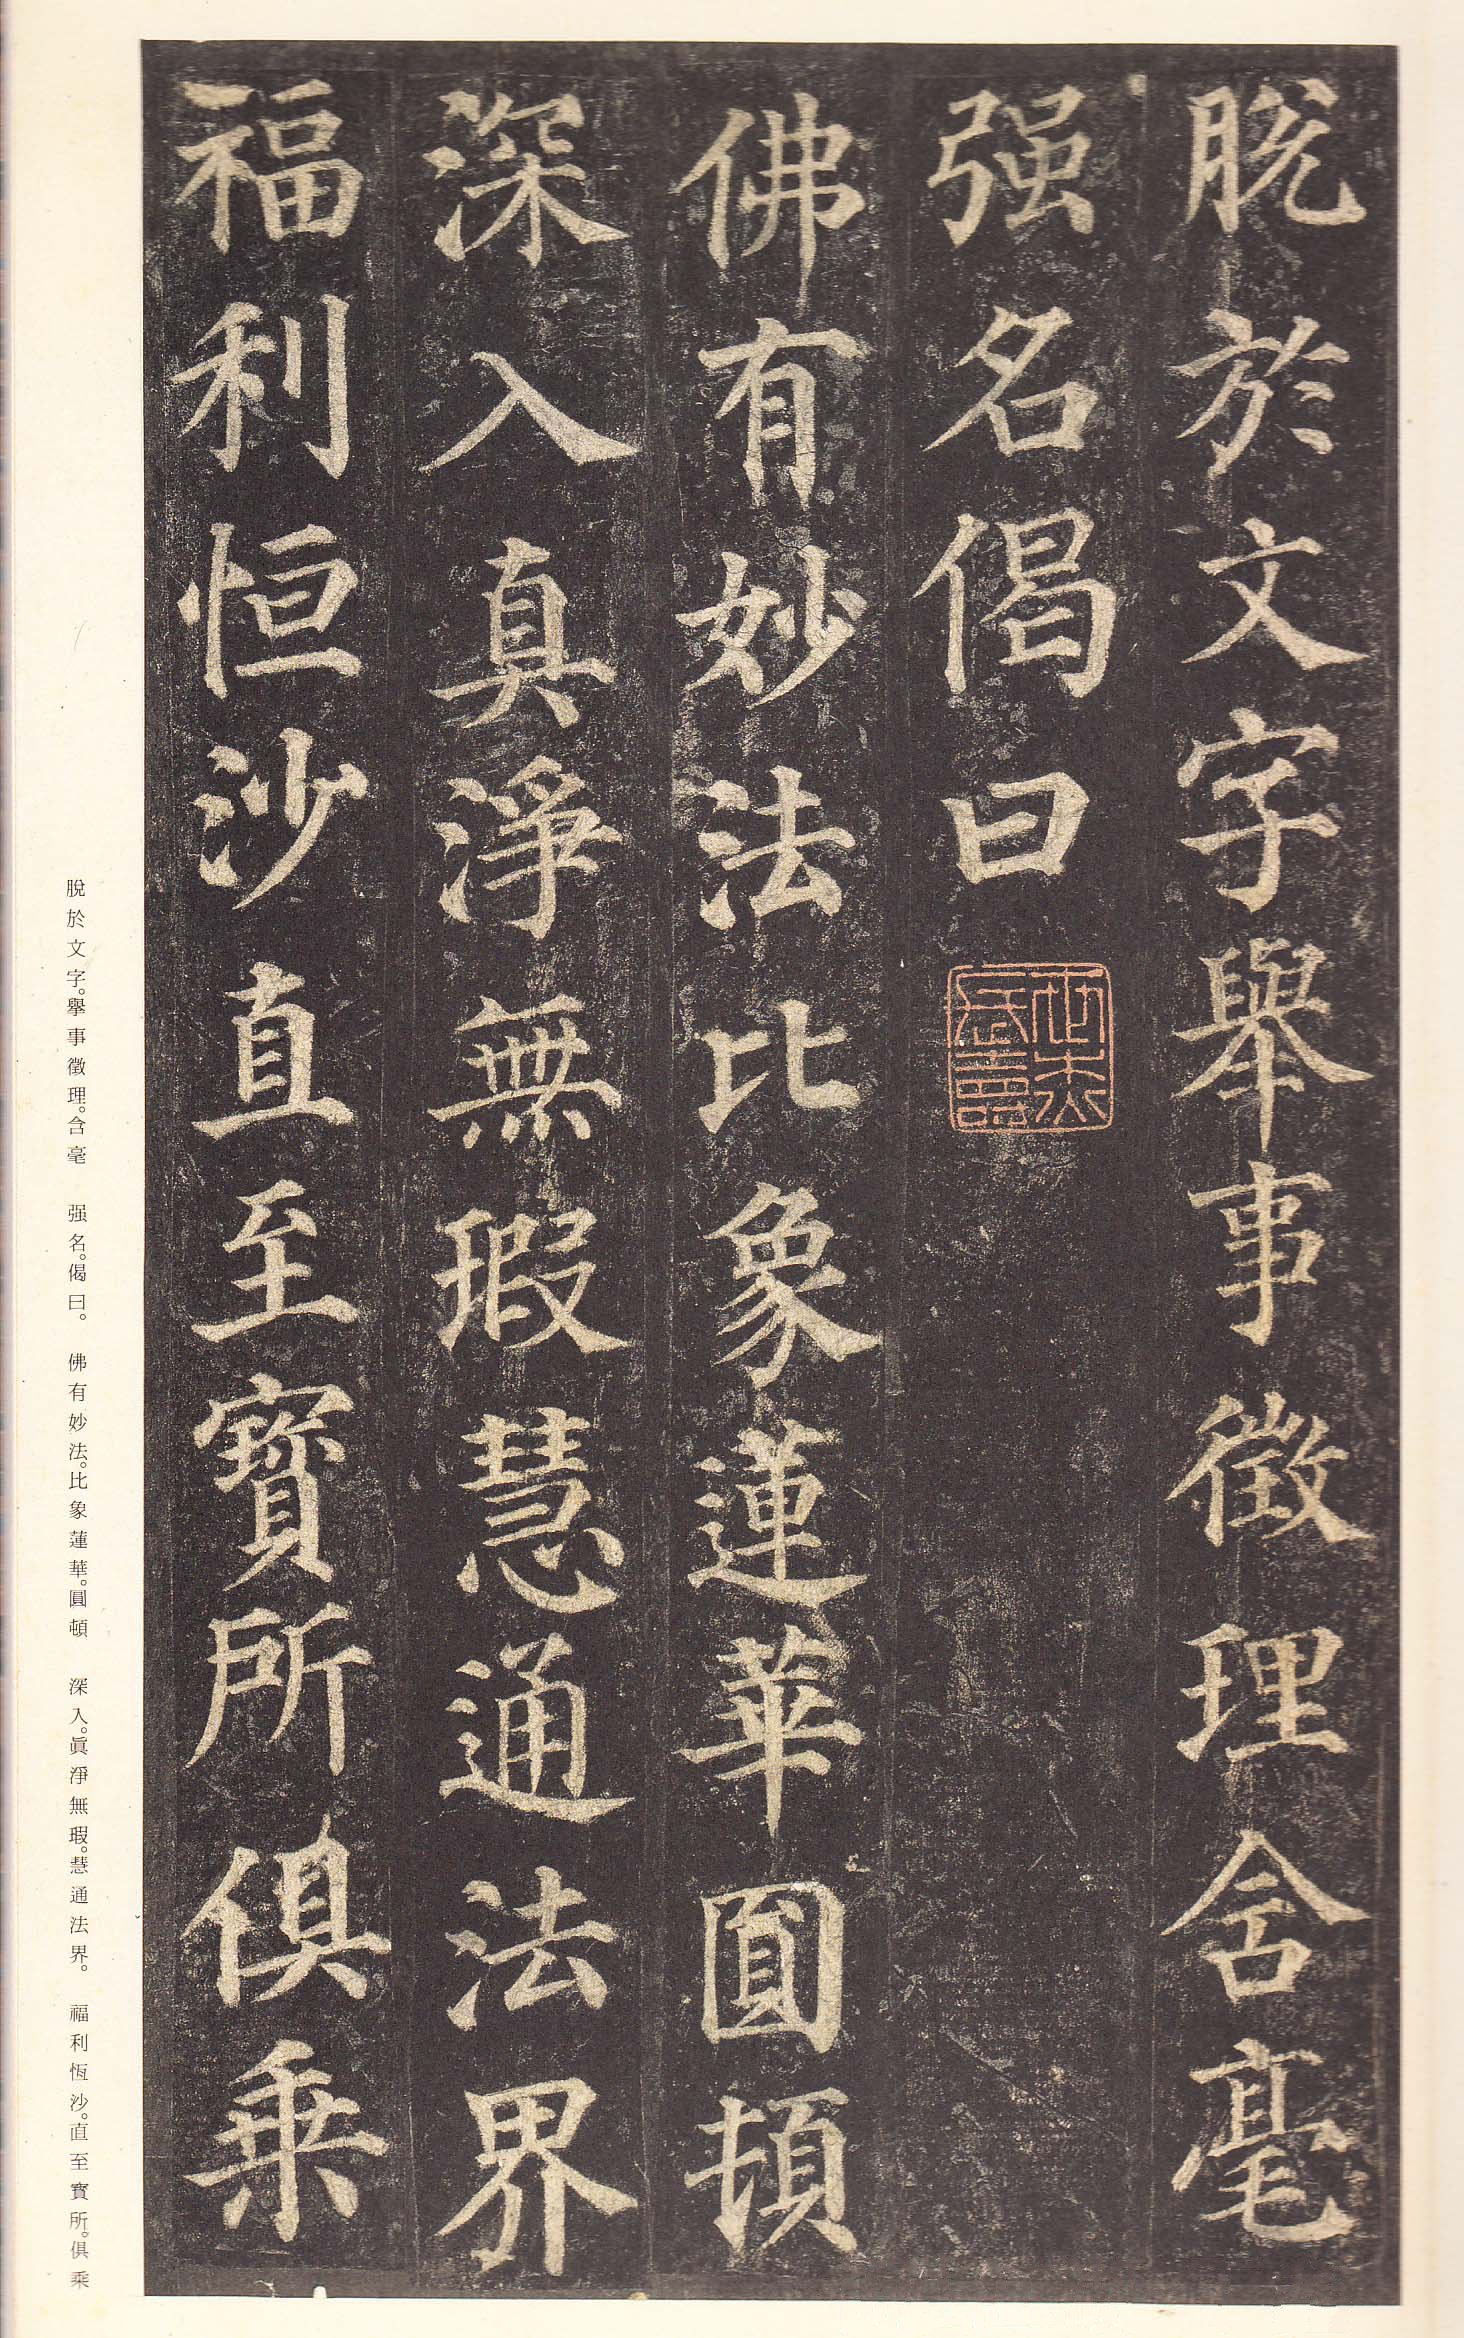 脫於文字舉事徵理含毫
强名偈曰
佛有妙法比象蓮華圓頓
深入真淨無瑕慧通法界
福利恒沙直至寶所俱乘
脫於文字。擧事徵理。含毫　强名。偈曰。　佛有妙法。比象蓮華。圓頓　深入。眞淨無瑕。慧通法界。　福利恆沙。直至寶所。俱乘